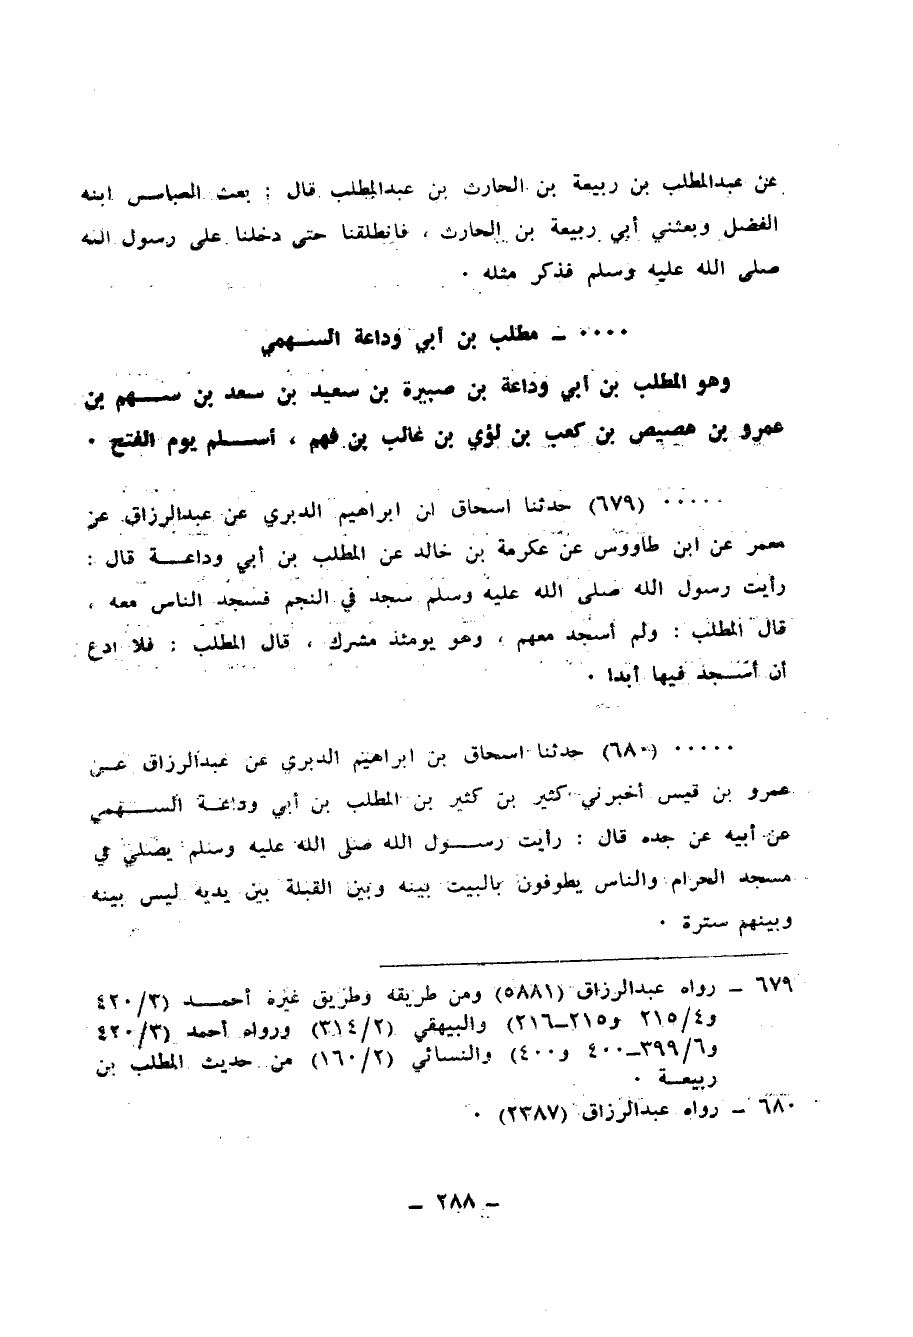 عن عبدالمطلب بن ربيعة بن الحارث بن عبدالمطلب قال : بعث العباس ابنه
الفضل وبعثني أبي ربيعة بن الحارث ، فانطلقنا حتى دخلنا على رسول الله
صلى الله عليه وسلم فذكر مثله .
.... ـ مطلب بن أبي وداعة السهمي
وهو المطلب بن أبي وداعة بن صبيرة بن سعيد بن سعد بن سهم بن
عمرو بن هصيص بن كعب بن لؤي بن غالب بن فهم ، أسلم يوم الفتح .
..... (٦٧٩) حدثنا اسحاق ابن ابراهيم الدبري عن عبدالرزاق عن
معمر عن ابن طاووس عن عكرمة بن خالد عن المطلب بن أبي وداعة قال :
رأيت رسول الله صلى الله عليه وسلم سجد في النجم فسجد الناس معه ،
قال المطلب : ولم أسجد معهم ، وهو يومئذ مشرك ، قال المطلب : فلا ادع
أن أسجد فيها أبدا .
..... (٦٨٠) حدثنا اسحاق بن ابراهيم الدبري عن عبدالرزاق عن
عمرو بن قيس أخبرني كثير بن كثير بن المطلب بن أبي وداعة السهمي
عن أبيه عن جده قال : رأيت رسول الله صلى الله عليه وسلم يصلي في
مسجد الحرام والناس يطوفون بالبيت بينه وبين القبلة بين يديه ليس بينه
وبينهم سترة .
٦٧٩ ـ رواه عبدالرزاق (٥٨٨١) ومن طريقه وطريق غيره أحمد (٤٢٠/٣
و٢١٥/٤ و٢١٥ـ٢١٦) والبيهقي (٣١٤/٢) ورواه أحمد (٤٢٠/٣
و٣٩٩/٦ـ٤٠٠ و٤٠٠) والنسائي (١٦٠/٢) من حديث المطلب بن
ربيعة .
٦٨٠ ـ رواه عبدالرزاق (٢٣٨٧) .
ـ ٢٨٨ ـ